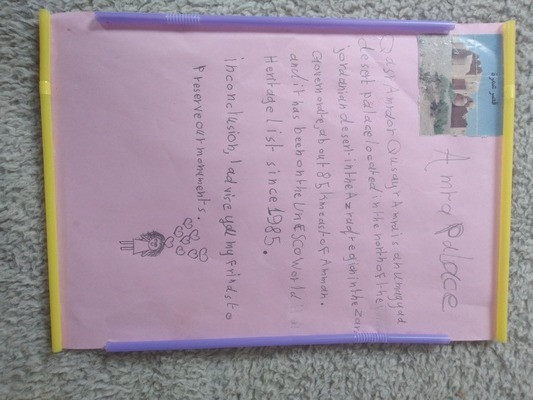 قصر عمرة
Amra palace
Qasr Amra or Qusayr Amra is an Umayyad
desert palace located in the north of the
jordanian desert in the Azraq region in the Zar
Governorate, about 85 km east of Amman.
and it has been on the UnESCo World
Heritage List since 1985.
In conclusion, I advire you my frinds to
preserve our monuments.